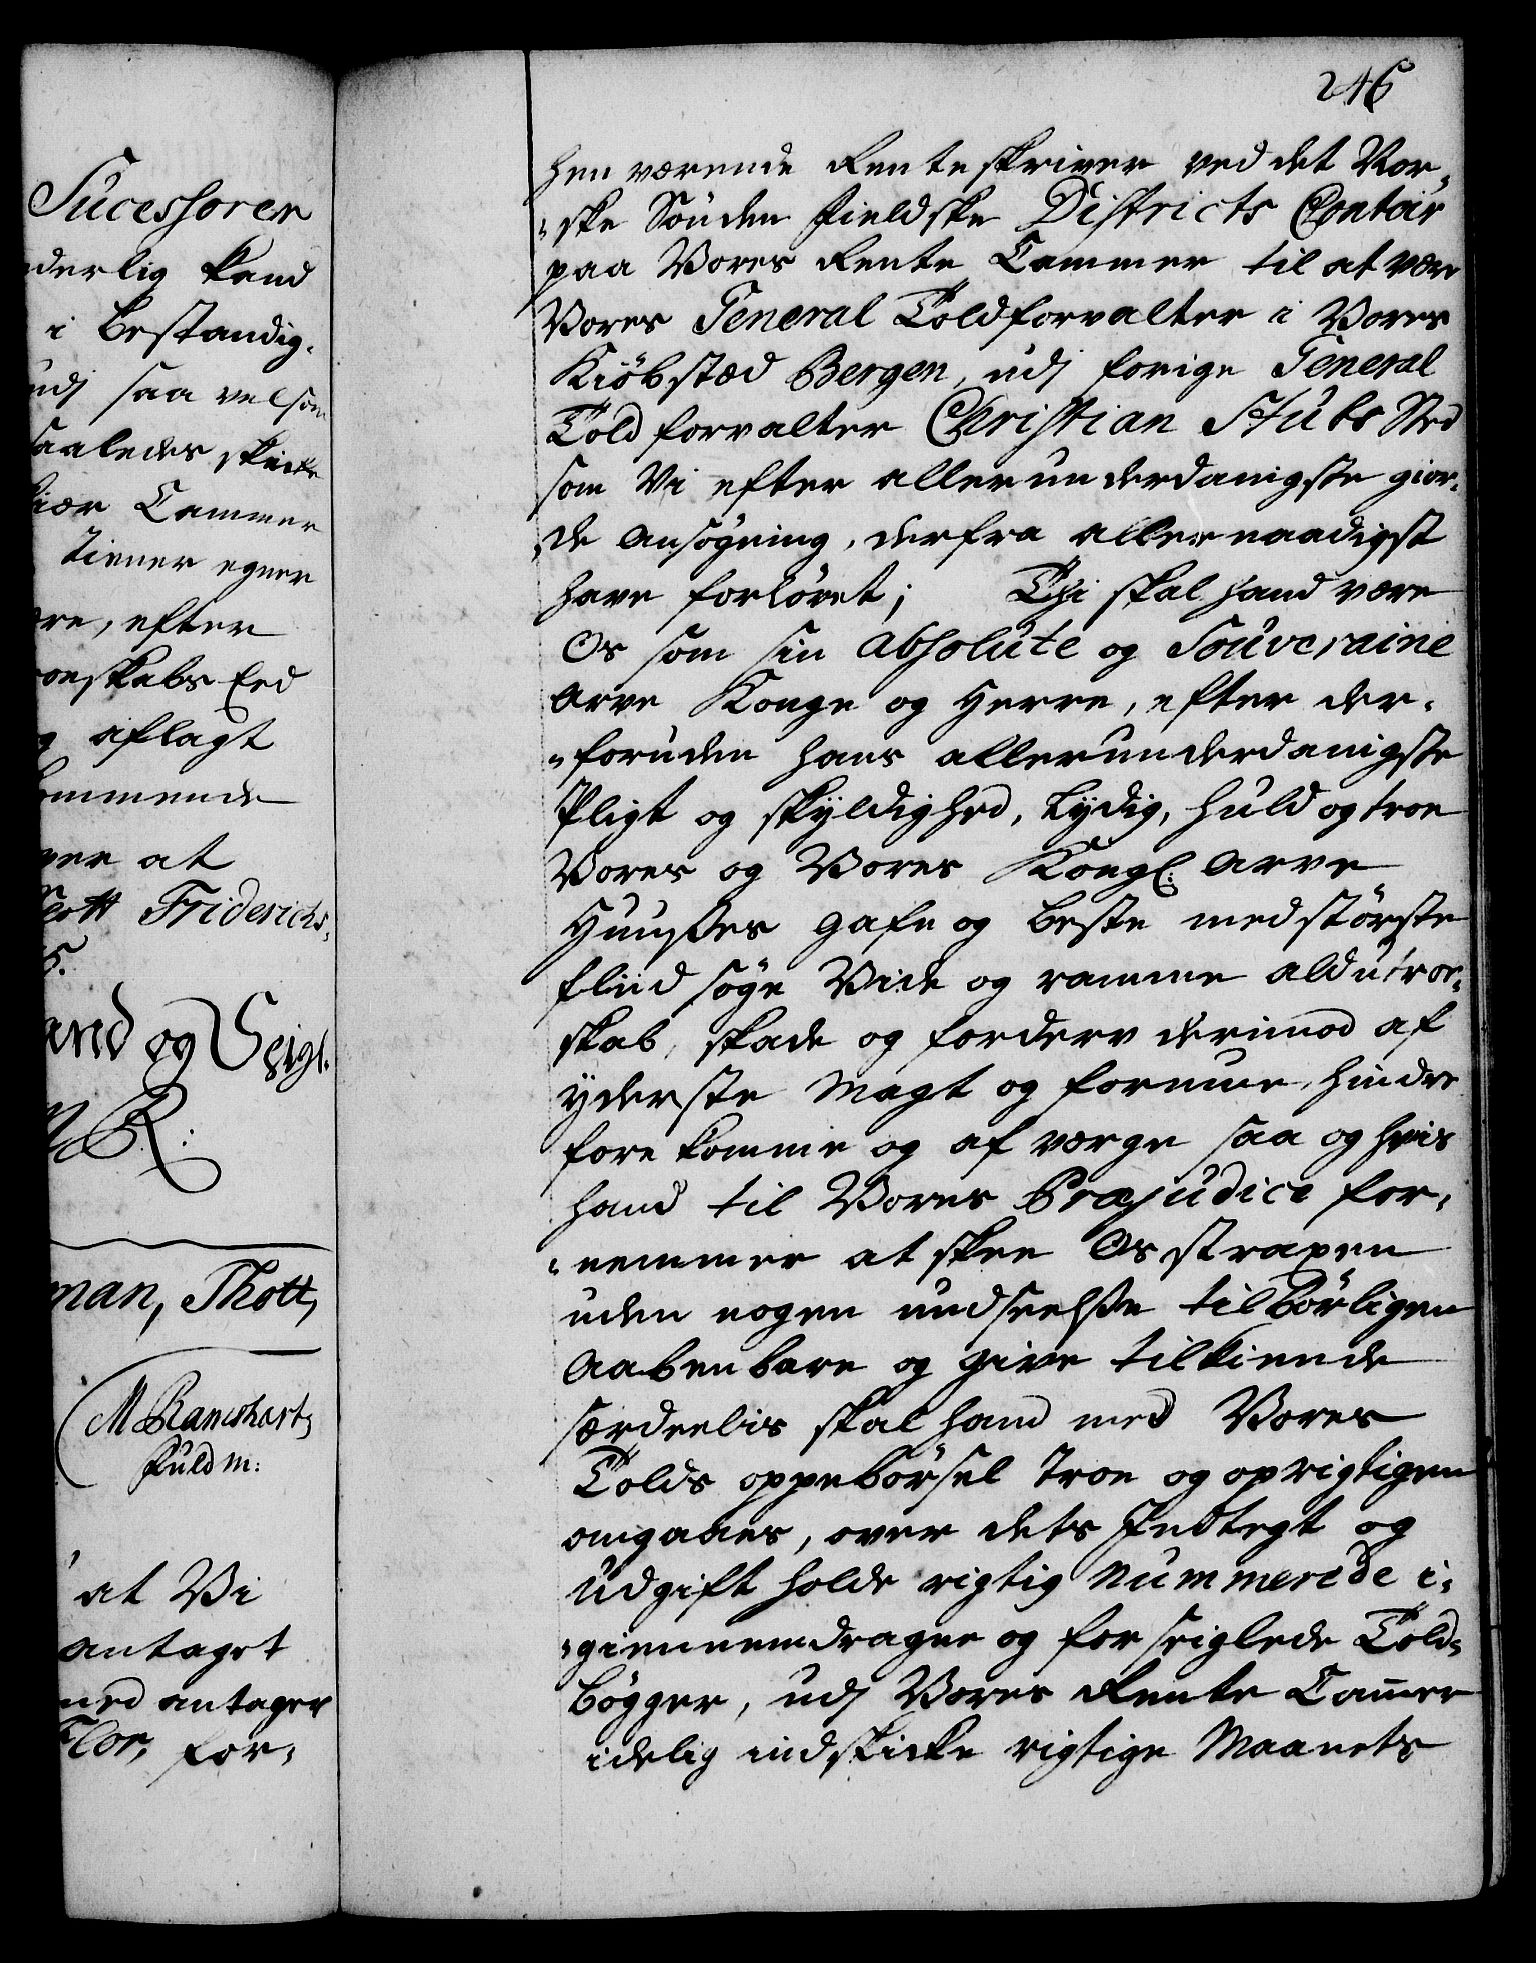 Sucessorer
derlig kand
i bestandig-
udj saa velsom
saaledes skicke
Cammer
tiener egner
re, efter
oeskabs Eed
g aflagt
ommende
ver at
lott Friderichs-
5.
and og Seigl.
R:
man, Thott,
M Ramshart,
Fuldm:
at Vi
antaget
ned antager
Flor, for-
246
hen værende Renteskriver ved det Nor-
-ske Sönden Fieldske Districts Contoir
paa Vores Rente Cammer til at være
Vores General Toldforvalter i Vores
Kiöbstæd Bergen, udj forige General
Told forvalter Christian Stubs Sted
som Vi efter allerunderdanigste gior-
-de Ansøgning, derfra allernaadigst
have forløvet; Thi skal hand være
Os som sin absolute og Souveraine
Arve Konge og Herre, efter der-
-foruden hans allerunderdanigste
Pligt og skyldighed, Lydig, huld og troe
Vores og Vores Kongl: Arve
Huuses gafn og beste med störste
fliid söge Vide og ramme ald utroe-
skab, skade og forderv derimod af
yderste Magt og formue, hindre
fore komme og af værge saa og hvis
hand til Vores Præjudice for-
-nemmer at skee Os straxen
uden nogen undseelse tilbörligen
Aabenbare og give tilkiende
særdeelis skal hand med Vores
Tolds oppebörsel Troe og oprigtigen
omgaaes, over dets Indtegt og
Udgift holde rigtig Nummerede i-
-giennemdragne og forseiglede Told-
bögger, udj Vores Rente Cammer
idelig indskicke rigtige Maanets